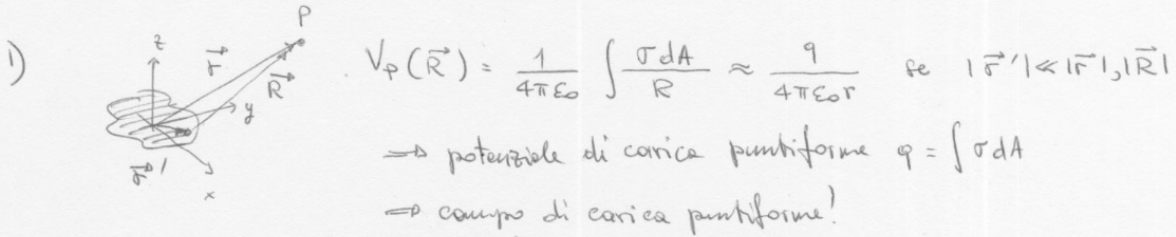 1)
P
z
r⃗
R⃗
y
r⃗'
x
V_P(R⃗) = 1/(4πε₀) ∫ σdA/R ≈ q/(4πε₀r) se |r⃗'| ≪ |r⃗|, |R⃗|
⇒ potenziale di carica puntiforme q = ∫ σdA
⇒ campo di carica puntiforme!